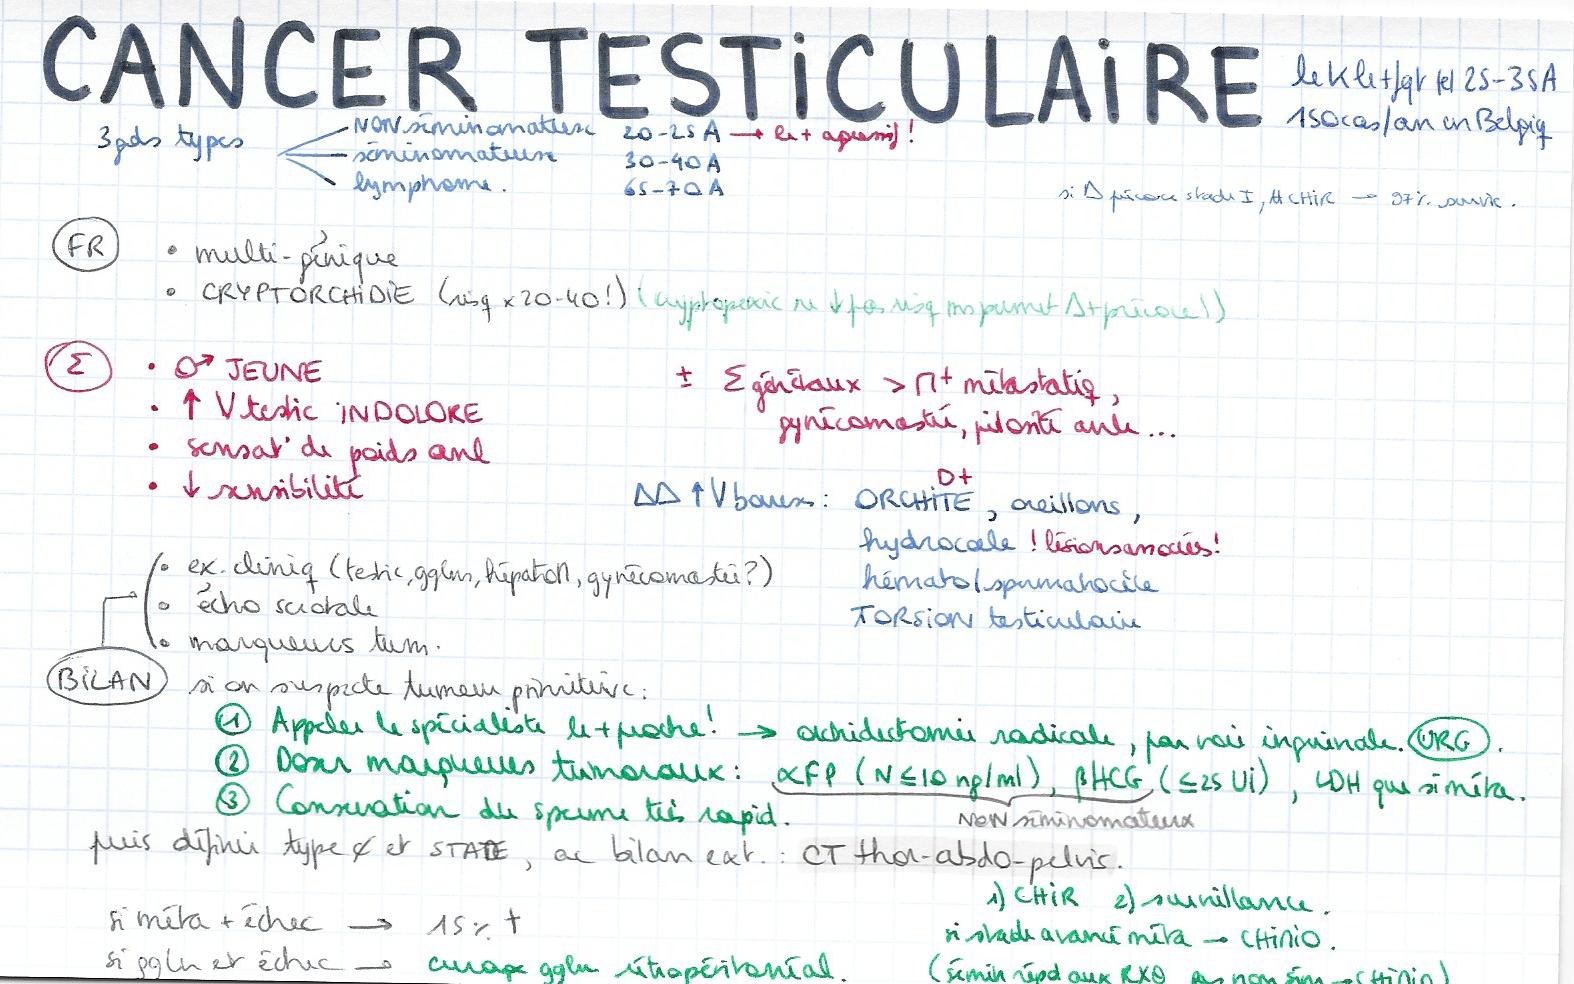 CANCER TESTiCULAiRE
le K le + fqt tel 25-35A
150cas/an en Belgiq
3 gds types
NON séminomateuse 20-25A → le + agressif !
séminomateuse 30-40A
lymphome. 65-70A
si Δ précoce stade I, # CHiR → 97% survie.
FR
• multi-génique
• CRYPTORCHiDiE (risq x20-40!) (cryptopexie ne ↓ pas risq ms permet Δ + précoce!)
Σ
• ♂ JEUNE
• ↑ V testic iNDOLORE
• sensat° de poids
• ↓ sensibilité
± Σ généraux > M+ métastatiq,
gynécomastie, pilosité
ΔΔ ↑ V bourses : ORCHiTE D+, oreillons,
hydrocoele ! lésions associées!
hémato/spermatocèle
TORSiON testiculaire
BiLAN
• ex. cliniq (testic, gglns, hépatom, gynécomastie?)
• écho scrotale
• marqueurs tum.
si on suspecte tumeur primitive :
① Appeler le spécialiste le + proche! → orchidectomie radicale, par voie inguinale. URG.
② Doser marqueurs tumoraux : αFP (N ≤ 10 ng/ml), βHCG (≤ 25 Ui), LDH que si méta.
NON séminomateux
③ Conservation du sperme très rapid.
puis définir type ¢ et STADE, ac bilan ext. : CT thor-abdo-pelvis.
1) CHiR 2) surveillance.
si stade avancé méta → CHiMiO.
(sémin répd aux RXθ pas non sém → CHiMio)
si méta + échec → 15% †
si ggln et échec → curage ggln rétropéritonéal.